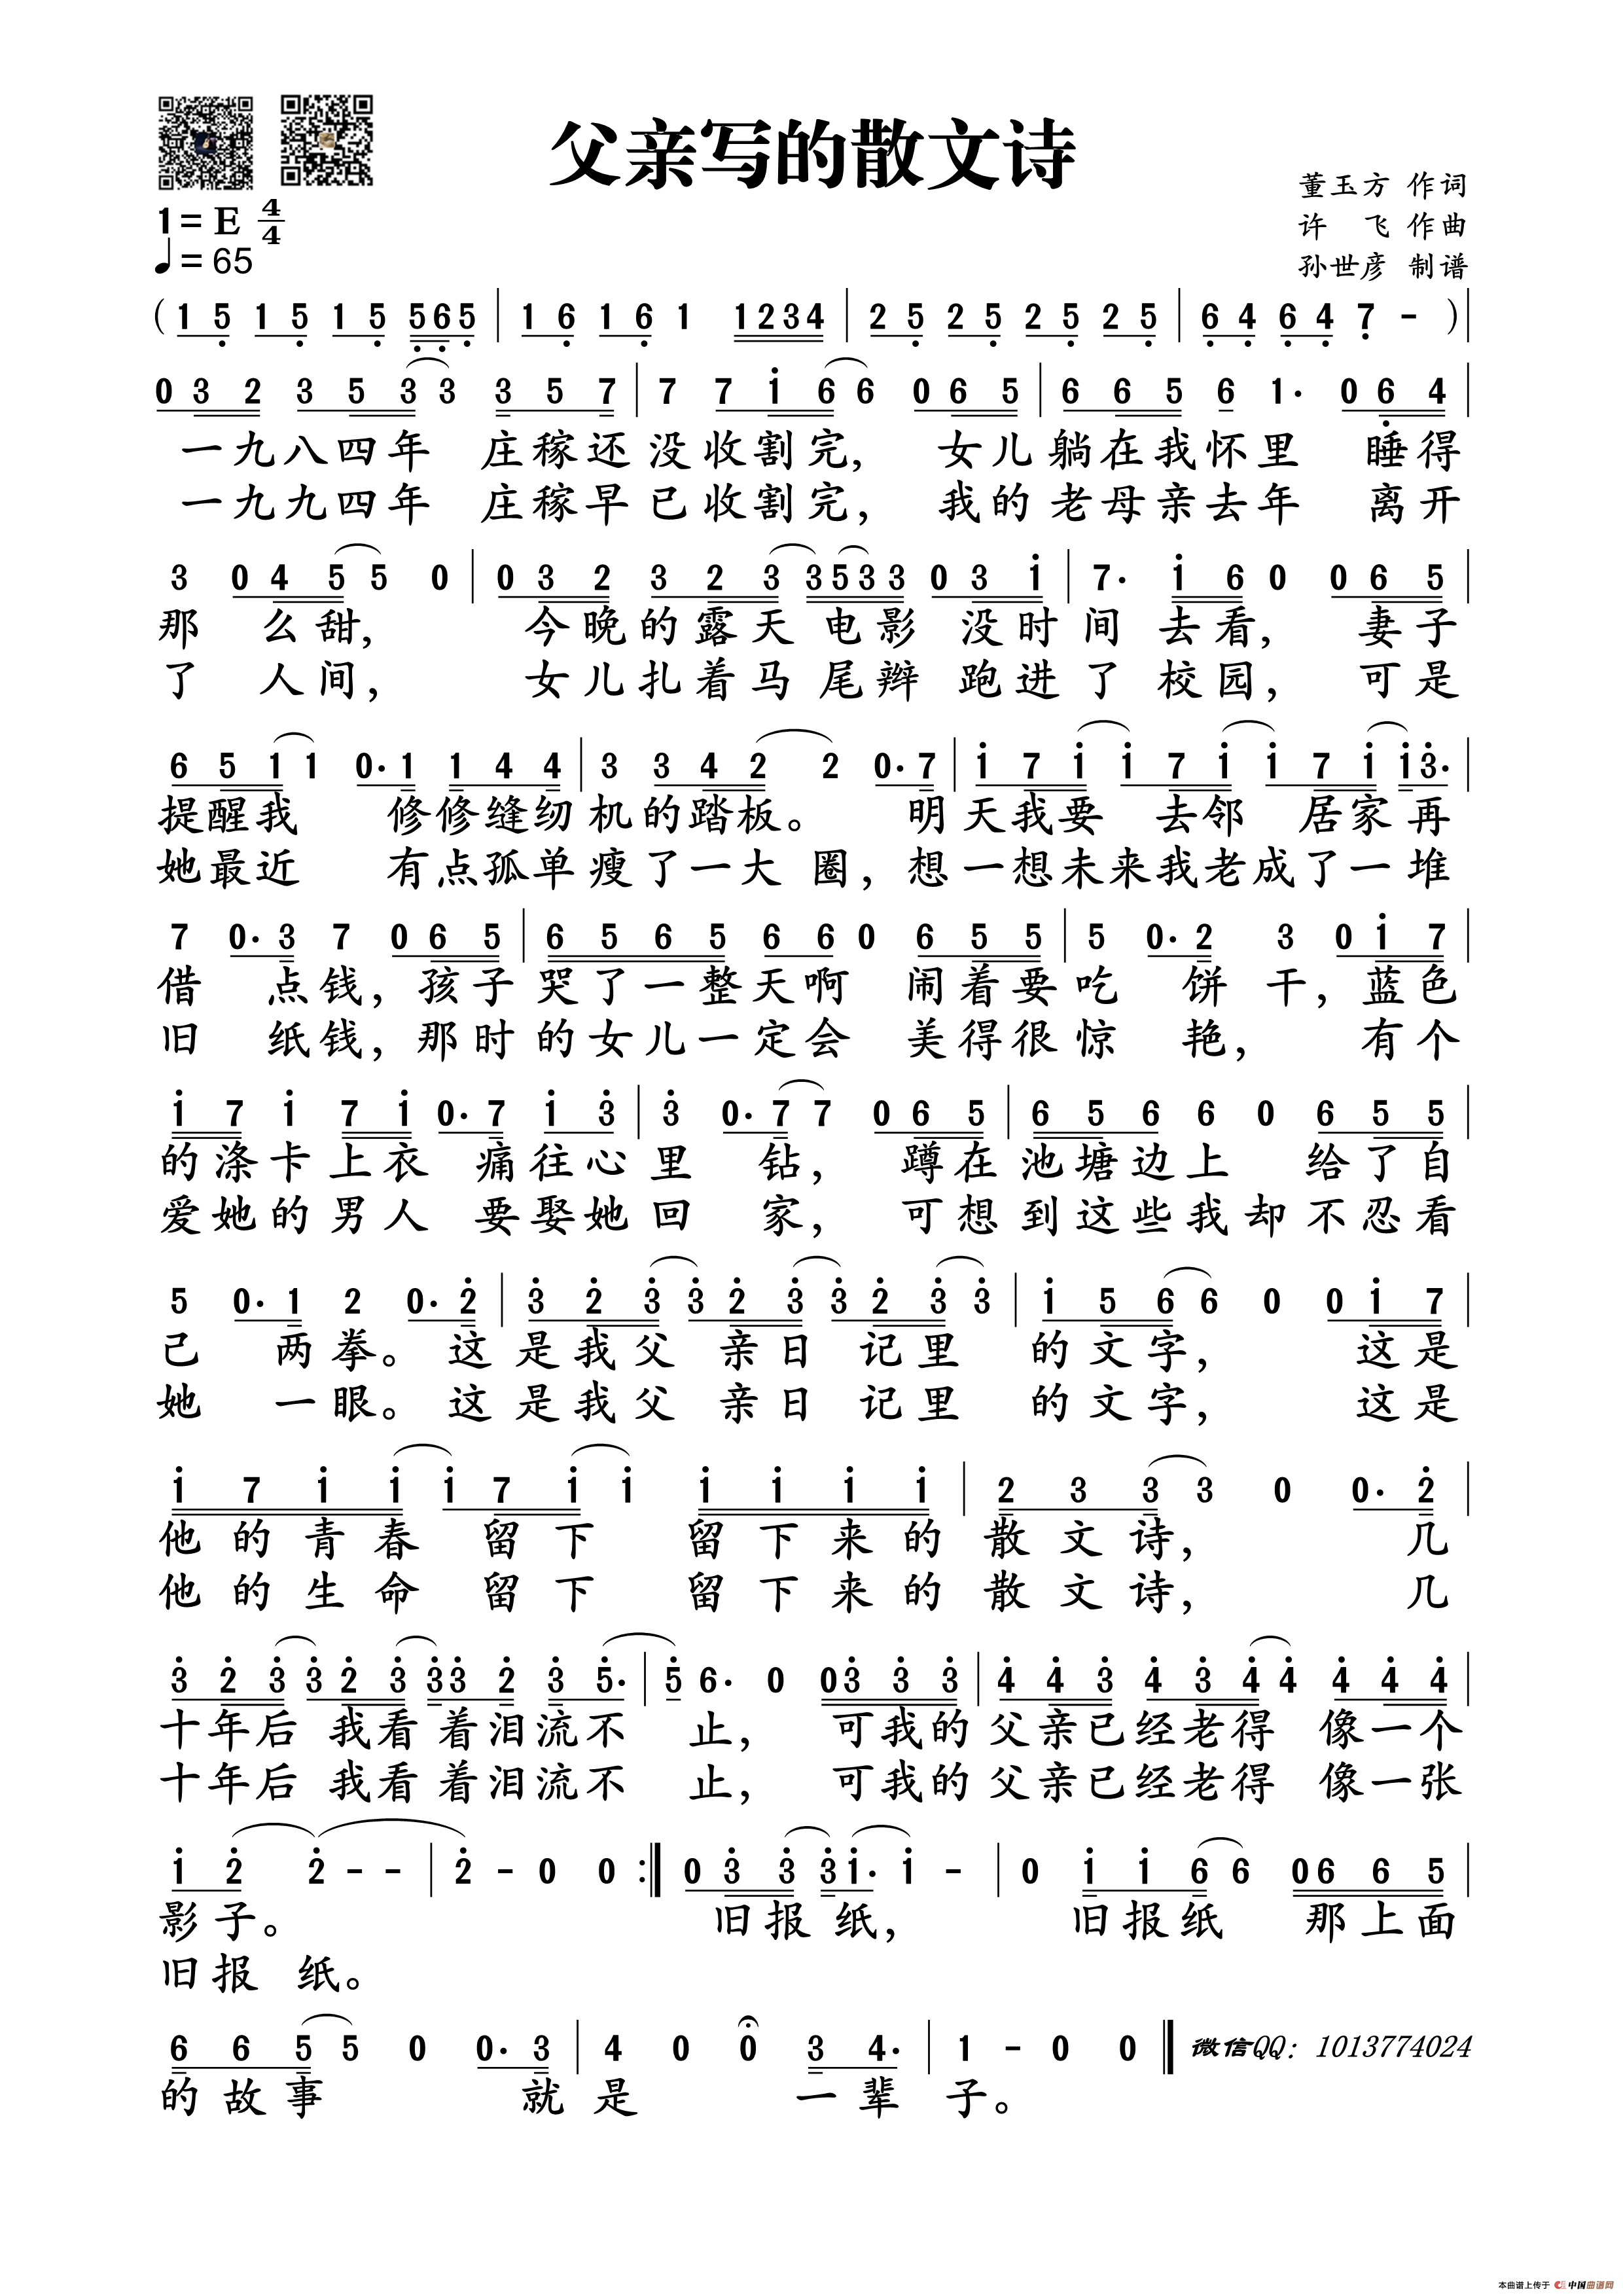 父亲写的散文诗
董玉方 作词
许 飞 作曲
孙世彦 制谱
1= E 4/4
♩= 65
( 1 5 1 5 1 5 5 6 5 | 1 6 1 6 1 1 2 3 4 | 2 5 2 5 2 5 2 5 | 6 4 6 4 7 - ) |
0 3 2 3 5 3 3 3 5 7 | 7 7 1 6 6 0 6 5 | 6 6 5 6 1· 0 6 4 |
一九八四年 庄稼还没收割完, 女儿躺在我怀里 睡得
一九九四年 庄稼早已收割完, 我的老母亲去年 离开
3 0 4 5 5 0 | 0 3 2 3 2 3 3 5 3 3 0 3 1 | 7· 1 6 0 0 6 5 |
那 么甜, 今晚的露天电影 没时间 去看, 妻子
了 人间, 女儿扎着马尾辫 跑进了 校园, 可是
6 5 1 1 0· 1 1 4 4 | 3 3 4 2 2 0· 7 | 1 7 1 1 7 1 1 7 1 1 3· |
提醒我 修修缝纫机的踏板。 明天我要 去邻 居家再
她最近 有点孤单瘦了一大 圈, 想一想未来我老成了一堆
7 0· 3 7 0 6 5 | 6 5 6 5 6 6 0 6 5 5 | 5 0· 2 3 0 1 7 |
借 点钱, 孩子哭了一整天啊 闹着要吃 饼 干, 蓝色
旧 纸钱, 那时的女儿一定会 美得很惊 艳, 有个
1 7 1 7 1 0· 7 1 3 | 3 0· 7 7 0 6 5 | 6 5 6 6 0 6 5 5 |
的涤卡上衣 痛往心里 钻, 蹲在池塘边上 给了自
爱她的男人 要娶她回 家, 可想到这些我却不忍看
5 0· 1 2 0· 2 | 3 2 3 3 2 3 3 2 3 3 | 1 5 6 6 0 0 1 7 |
己 两拳。 这是我父 亲日 记里 的文字, 这是
她 一眼。 这是我父 亲日 记里 的文字, 这是
1 7 1 1 1 7 1 1 1 1 1 1 | 2 3 3 3 0 0· 2 |
他的青春 留下 留下来的散文诗, 几
他的生命 留下 留下来的散文诗, 几
3 2 3 3 2 3 3 3 2 3 5· | 5 6· 0 0 3 3 3 | 4 4 3 4 3 4 4 4 4 4 |
十年后 我看着泪流不 止, 可我的父亲已经老得 像一个
十年后 我看着泪流不 止, 可我的父亲已经老得 像一张
1 2 2 - - | 2 - 0 0 :| 0 3 3 3 1· 1 - | 0 1 1 6 6 0 6 6 5 |
影子。 旧报纸, 旧报纸 那上面
旧报 纸。
6 6 5 5 0 0· 3 | 4 0 0 3 4· | 1 - 0 0 ‖ 微信QQ: 1013774024
的故事 就是 一辈 子。
本曲谱上传于 中国曲谱网